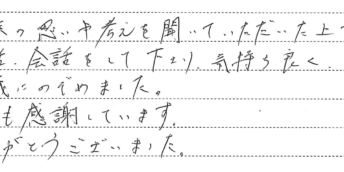 の思いや考えを聞いていただいた上
会話をして下さり、気持ち良く、
にのぞめました。
も感謝しています。
がとうございました。